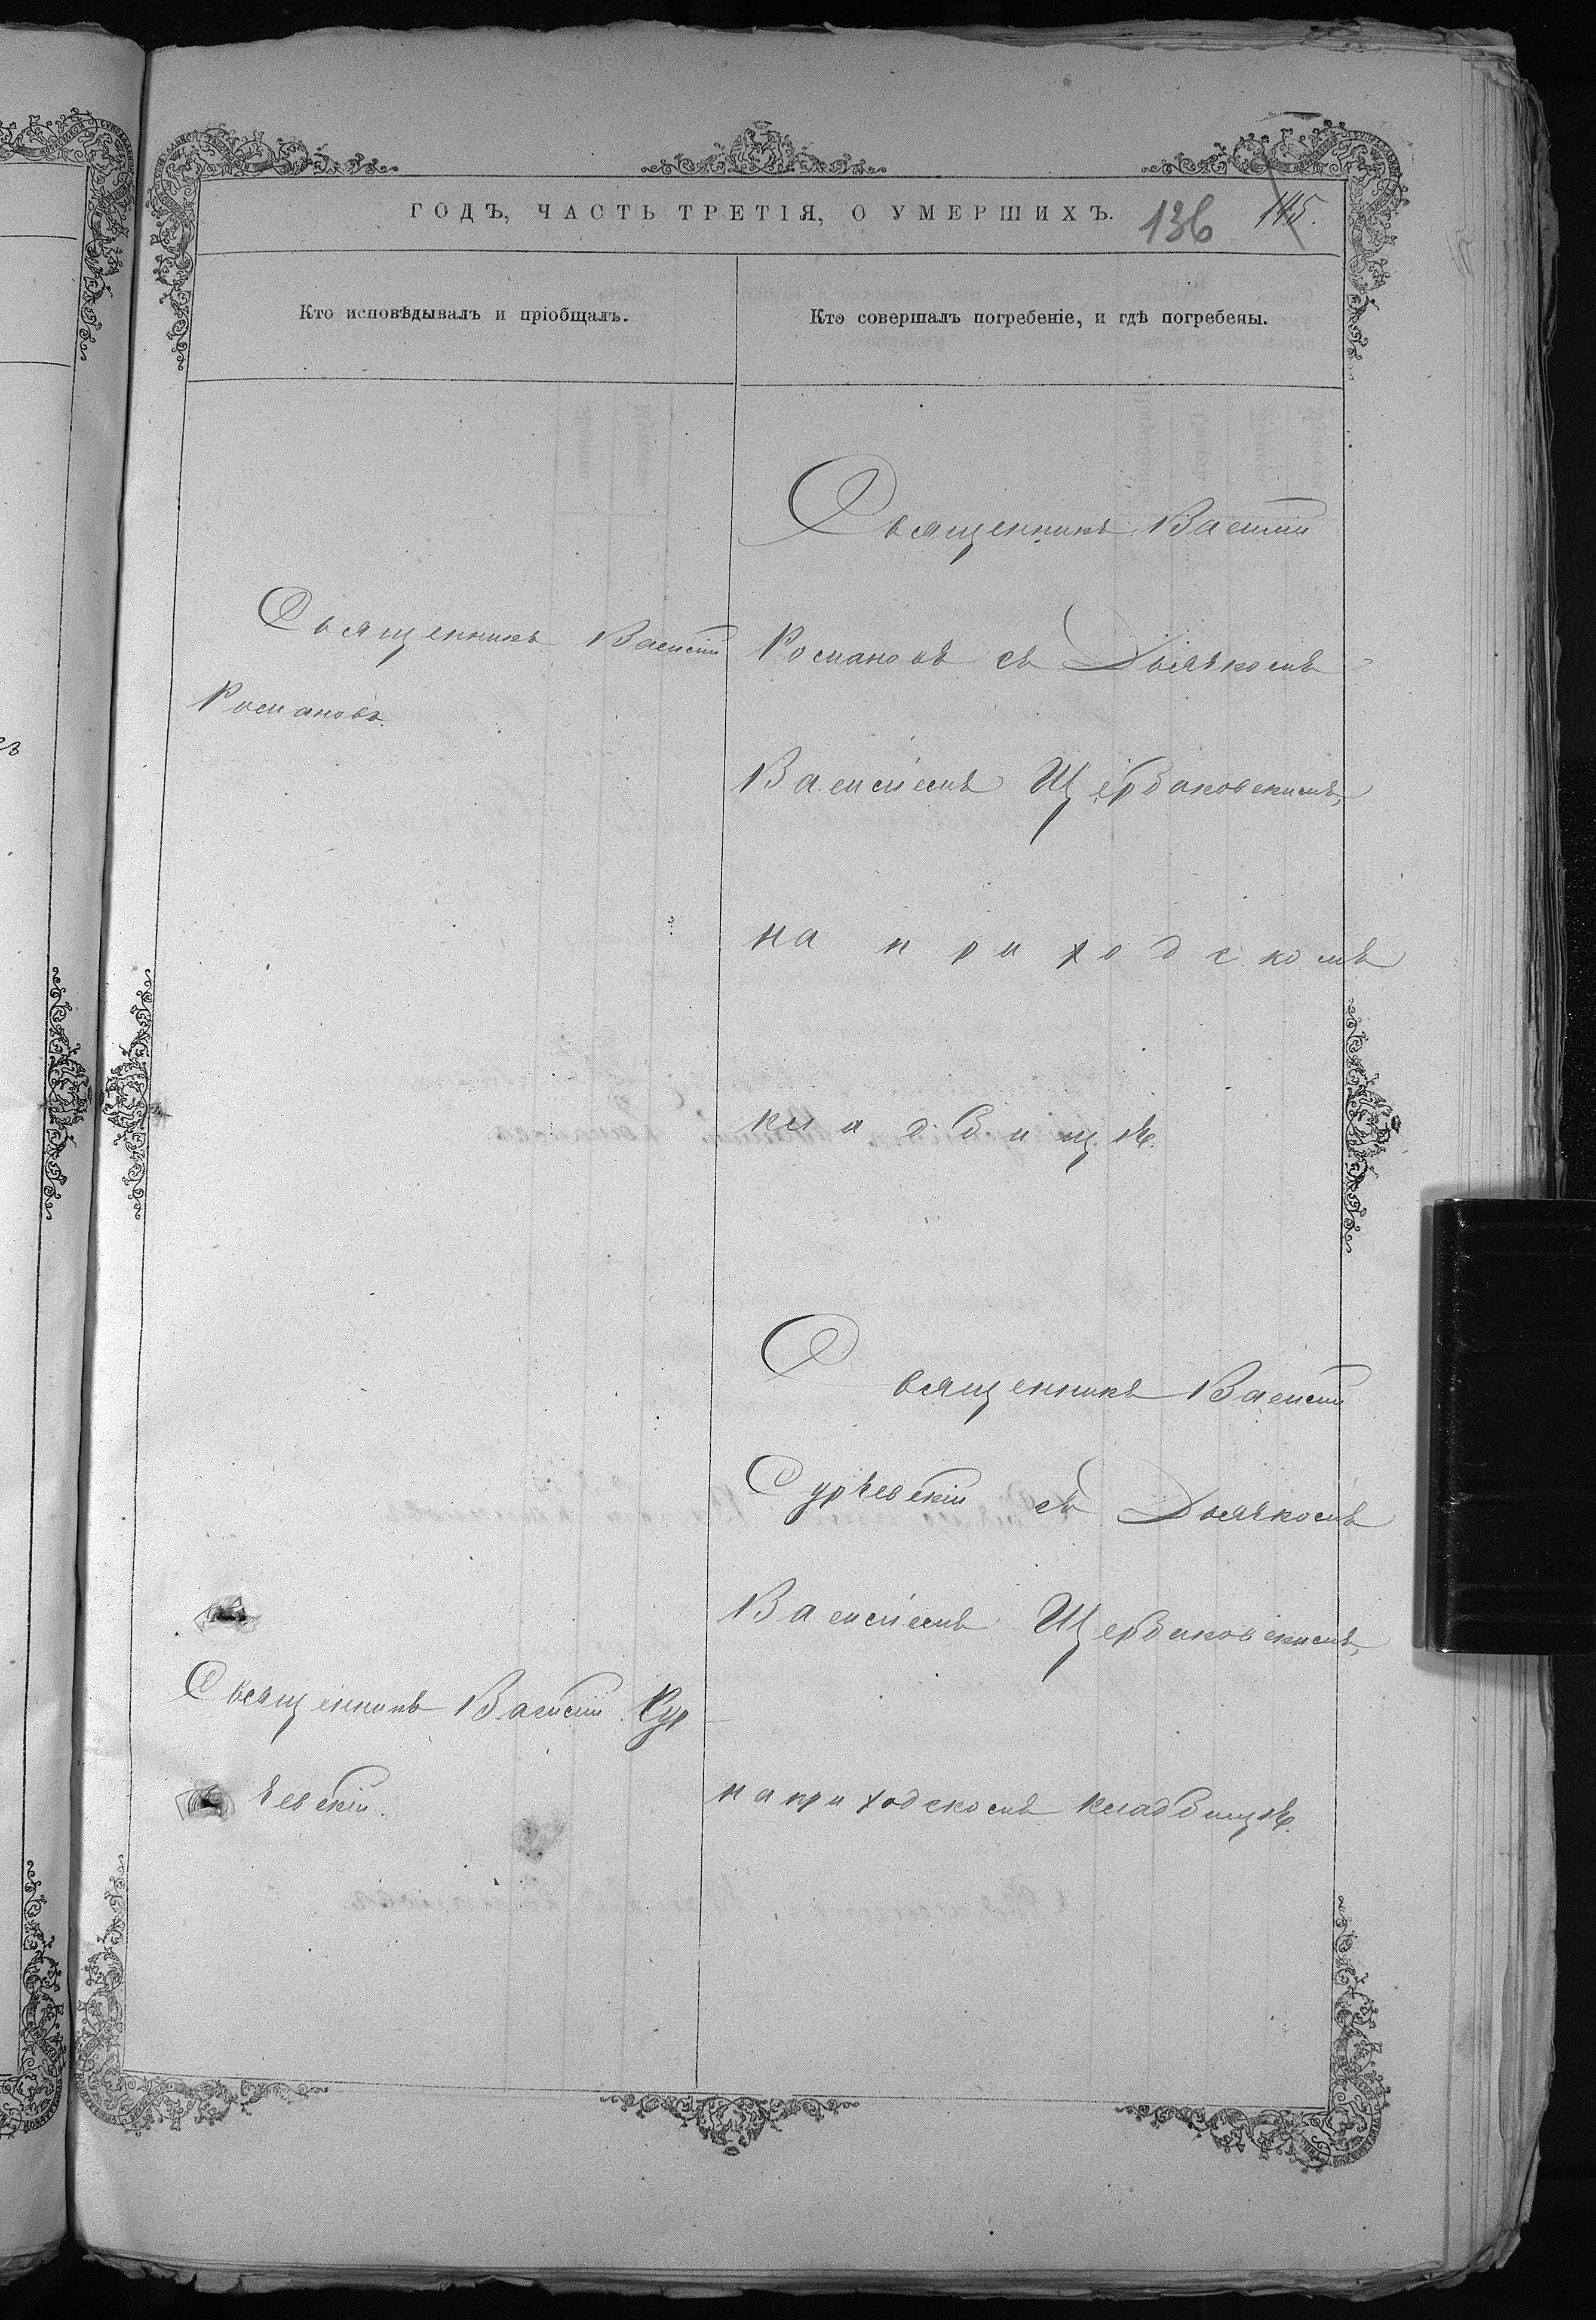 ГОДЪ, ЧАСТЬ ТРЕТІЯ, О УМЕРШИХЪ.
136
145.
Кто исповѣдывалъ и пріобщалъ.
Кто совершалъ погребеніе, и гдѣ погребены.
Священникъ Василій
Романовъ.
Священникъ Василій
Романовъ съ Дьячкомъ
Василіемъ Щербаковскимъ,
на приходскомъ
кладбищѣ.
Священникъ Василій
съ Дьячкомъ
Василіемъ Щербаковскимъ,
на приходскомъ кладбищѣ.
Священникъ Василій